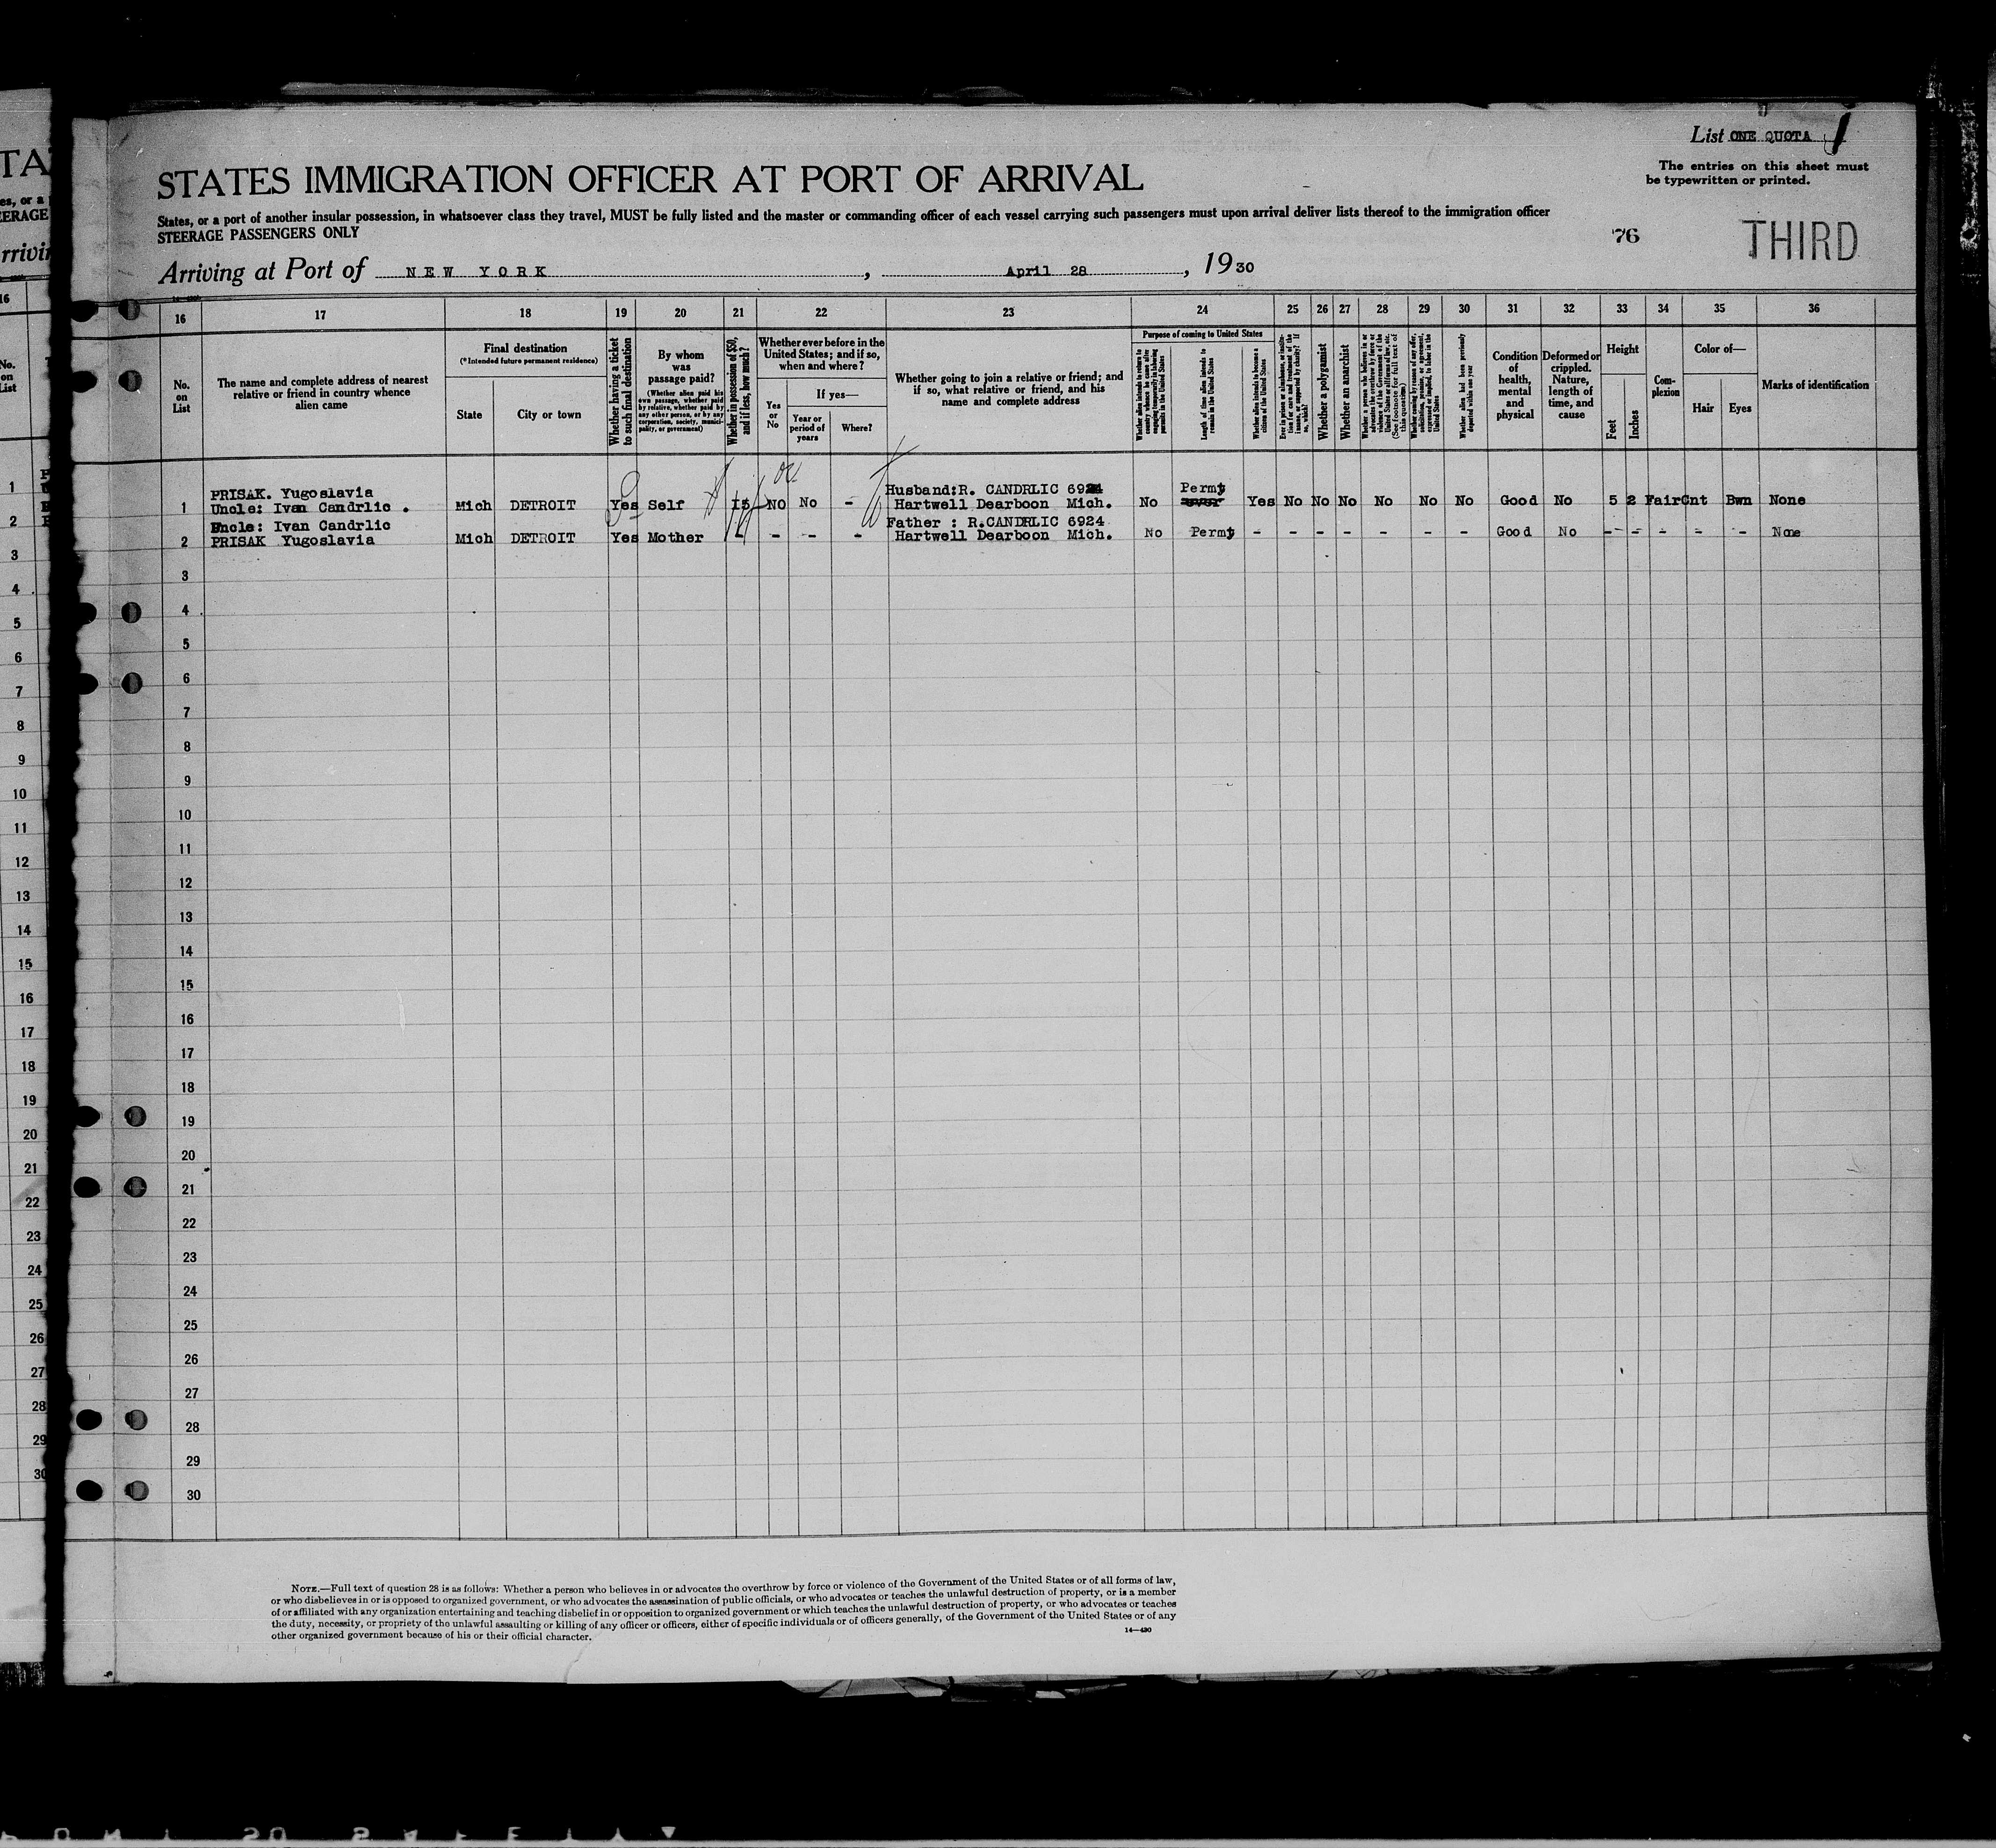 List ONE QUOTA 1
The entries on this sheet must
be typewritten or printed.
STATES IMMIGRATION OFFICER AT PORT OF ARRIVAL
States, or a port of another insular possession, in whatsoever class they travel, MUST be fully listed and the master or commanding officer of each vessel carrying such passengers must upon arrival deliver lists thereof to the immigration officer
STEERAGE PASSENGERS ONLY
76 THIRD
Arriving at Port of NEW YORK, April 28, 1930
16 17 18 19 20 21 22 23 24 25 26 27 28 29 30 31 32 33 34 35 36
No. on List
The name and complete address of nearest relative or friend in country whence alien came
Final destination
(*Intended future permanent residence)
State
City or town
Whether having a ticket to such final destination
By whom was passage paid?
(Whether alien paid his own passage, whether paid by relative, whether paid by any other person, or by any corporation, society, municipality, or government)
Whether in possession of $50, and if less, how much?
Whether ever before in the United States; and if so, when and where?
Yes or No
If yes—
Year or period of years
Where?
Whether going to join a relative or friend; and if so, what relative or friend, and his name and complete address
Purpose of coming to United States
Whether alien intends to return to country whence he came after engaging temporarily in laboring pursuits in the United States
Length of time alien intends to remain in the United States
Whether alien intends to become a citizen of the United States
Ever in prison or almshouse, or institution for care and treatment of the insane, or supported by charity? If so, which?
Whether a polygamist
Whether an anarchist
(See footnote for full text of this question)
Whether coming by reason of any offer, solicitation, promise, or agreement, expressed or implied, to labor in the United States
Whether alien had been previously deported within one year
Condition of health, mental and physical
Deformed or crippled. Nature, length of time, and cause
Height
Feet
Inches
Complexion
Color of—
Hair
Eyes
Marks of identification
PRISAK. Yugoslavia Husband:R. CANDRLIC 6924 Permt
1 Uncle: Ivan Candrlic . Mich DETROIT Yes Self 15 NO No - Hartwell Dearboon Mich. No Yes No No No No No No Good No 5 2 Fair Cnt Bwn None
Uncle: Ivan Candrlic Father : R.CANDRLIC 6924
2 PRISAK Yugoslavia Mich DETROIT Yes Mother - - - - Hartwell Dearboon Mich. No Permt - - - - - - - Good No - - - - - None
3
4
5
6
7
8
9
10
11
12
13
14
15
16
17
18
19
20
21
22
23
24
25
26
27
28
29
30
NOTE.—Full text of question 28 is as follows: Whether a person who believes in or advocates the overthrow by force or violence of the Government of the United States or of all forms of law,
or who disbelieves in or is opposed to organized government, or who advocates the assassination of public officials, or who advocates or teaches the unlawful destruction of property, or is a member
of or affiliated with any organization entertaining and teaching disbelief in or opposition to organized government or which teaches the unlawful destruction of property, or who advocates or teaches
the duty, necessity, or propriety of the unlawful assaulting or killing of any officer or officers, either of specific individuals or of officers generally, of the Government of the United States or of any
other organized government because of his or their official character.
14—430